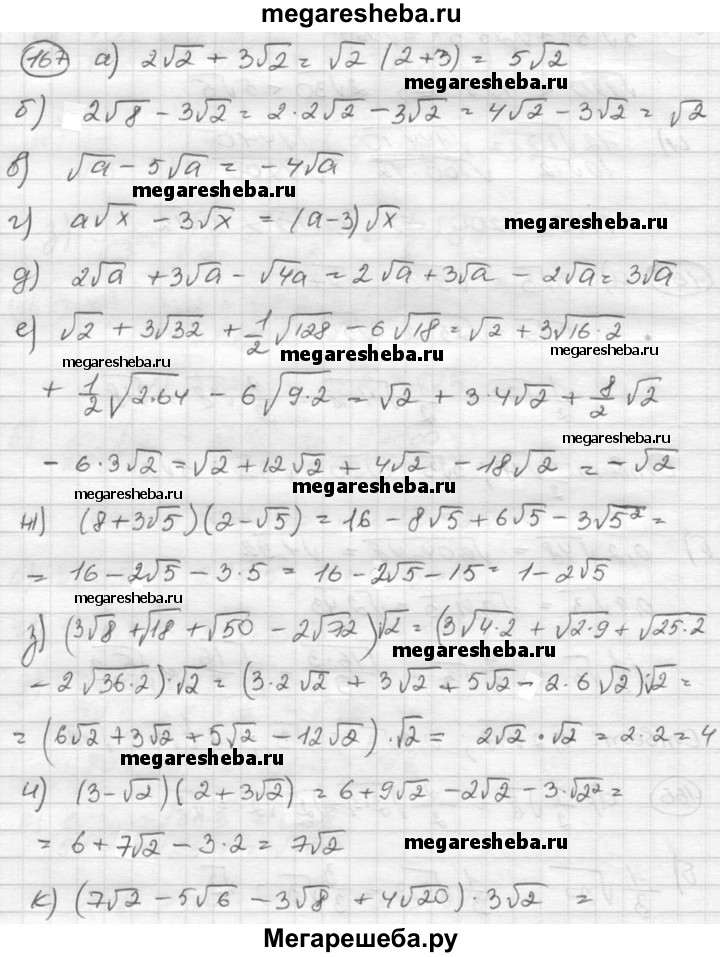 megaresheba.ru
167 а) 2√2 + 3√2 = √2 (2+3) = 5√2
megaresheba.ru
б) 2√8 - 3√2 = 2·2√2 - 3√2 = 4√2 - 3√2 = √2
в) √a - 5√a = -4√a
megaresheba.ru
г) a√x - 3√x = (a-3)√x
megaresheba.ru
д) 2√a + 3√a - √4a = 2√a + 3√a - 2√a = 3√a
е) √2 + 3√32 + 1/2 √128 - 6√18 = √2 + 3√16·2
megaresheba.ru megaresheba.ru
+ 1/2 √2·64 - 6√9·2 = √2 + 3·4√2 + 8/2 √2
megaresheba.ru
- 6·3√2 = √2 + 12√2 + 4√2 - 18√2 = -√2
megaresheba.ru megaresheba.ru
ж) (8+3√5)(2-√5) = 16 - 8√5 + 6√5 - 3√5² =
= 16 - 2√5 - 3·5 = 16 - 2√5 - 15 = 1 - 2√5
megaresheba.ru
з) (3√8 + √18 + √50 - 2√72)√2 = (3√4·2 + √2·9 + √25·2
megaresheba.ru
- 2√36·2)·√2 = (3·2√2 + 3√2 + 5√2 - 2·6√2)√2 =
= (6√2 + 3√2 + 5√2 - 12√2)·√2 = 2√2·√2 = 2·2 = 4
megaresheba.ru
и) (3-√2)(2+3√2) = 6 + 9√2 - 2√2 - 3·√2² =
= 6 + 7√2 - 3·2 = 7√2
megaresheba.ru
к) (7√2 - 5√6 - 3√8 + 4√20)·3√2 =
Мегарешеба.ру